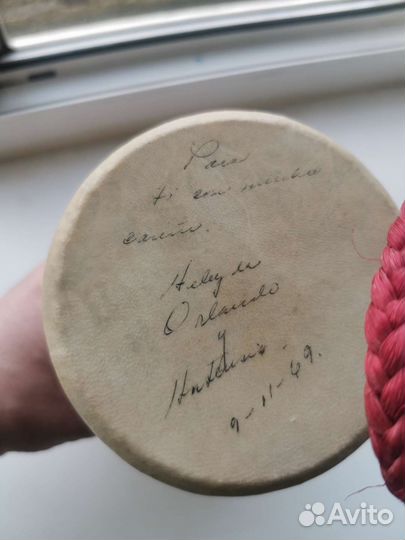 Para
ti con mucho
cariño.
Heleyda
Orlando
y
9-11-69.
Avito